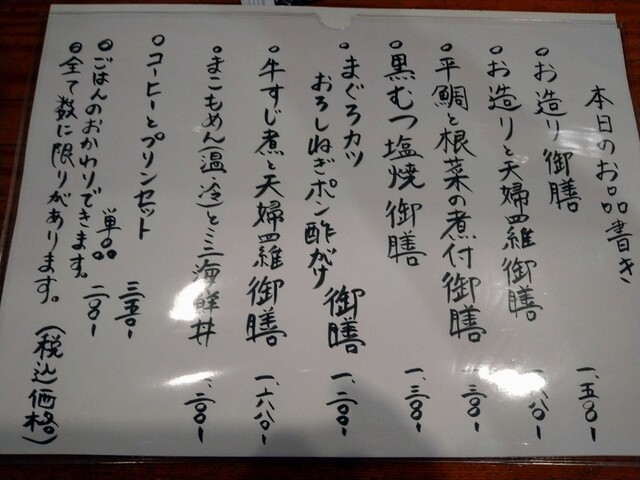 本日のお品書き
○お造り御膳 一、五〇〇-
○お造りと天婦羅御膳 一、六八〇-
○平鯛と根菜の煮付御膳 一、三〇〇-
○黒むつ塩焼御膳 一、三〇〇-
○まぐろカツ
おろしねぎポン酢がけ御膳 一、二〇〇-
○牛すじ煮と天婦羅御膳 一、六八〇-
○まこもめん(温・冷)とミニ海鮮丼 一、二〇〇-
○コーヒーとプリンセット 三五〇-
単品 二〇〇-
◎ごはんのおかわりできます。
◎全て数に限りがあります。(税込価格)